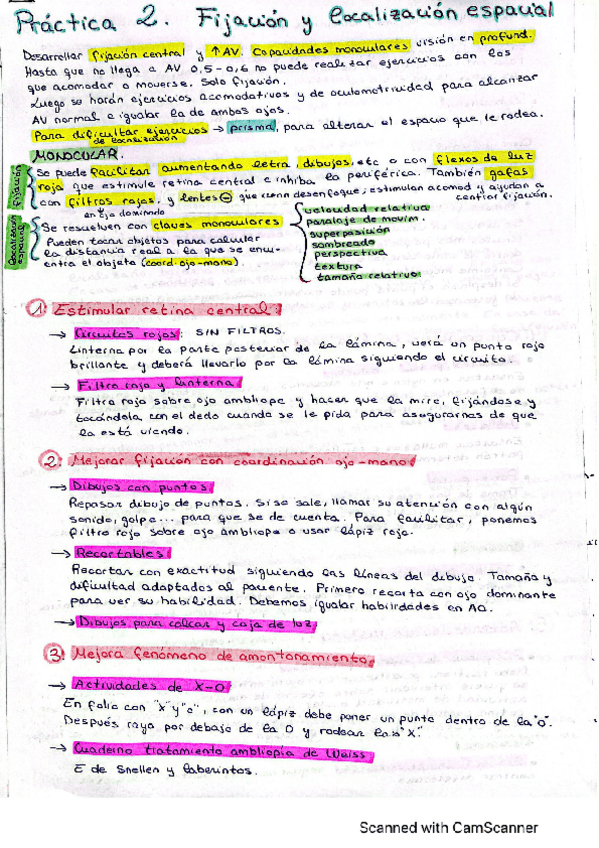 Práctica 2. Fijación y localización espacial
Desarrollar fijación central y ↑AV. Capacidades monoculares visión en profund.
Hasta que no llega a AV 0,5-0,6 no puede realizar ejercicios con los
que acomodar o moverse. Solo fijación.
Luego se harán ejercicios acomodativos y de oculomotricidad para alcanzar
AV normal e igualar la de ambos ojos.
Para dificultar ejercicios → prisma, para alterar el espacio que le rodea.
de localización
MONOCULAR.
Fijación
Se puede facilitar aumentando letra, dibujos, etc o con flexos de luz
roja que estimule retina central e inhiba la periférica. También gafas
con filtros rojos, y lentes ⊖ que crean desenfoque, estimulan acomod y ayudan a
centrar fijación.
en ojo dominando
Localización espacial
Se resuelven con claves monoculares
Pueden tocar objetos para calcular
la distancia real a la que se encu-
entra el objeto (coord. ojo-mano)
velocidad relativa
paralaje de movim.
superposición
sombreado
perspectiva
textura
tamaño relativo
1. Estimular retina central:
→ Circuitos rojos: SIN FILTROS.
Linterna por la parte posterior de la lámina, verá un punto rojo
brillante y deberá llevarlo por la lámina siguiendo el circuito.
→ Filtro rojo y linterna:
Filtro rojo sobre ojo ambliope y hacer que la mire, fijándose y
tocándola, con el dedo cuando se le pida para asegurarnos de que
la está viendo.
2. Mejorar fijación con coordinación ojo-mano:
→ Dibujos con puntos:
Repasar dibujo de puntos. Si se sale, llamar su atención con algún
sonido, golpe... para que se de cuenta. Para facilitar, ponemos
filtro rojo sobre ojo ambliope o usar lápiz rojo.
→ Recortables:
Recortar con exactitud siguiendo las líneas del dibujo. Tamaño y
dificultad adaptados al paciente. Primero recorta con ojo dominante
para ver su habilidad. Debemos igualar habilidades en AO.
→ Dibujos para calcar y caja de luz.
3. Mejora fenómeno de amontonamiento
→ Actividades de X-O
En folio con "x" y "o", con un lápiz debe poner un punto dentro de la "o".
Después raya por debajo de la O y rodear la "X".
→ Cuaderno tratamiento ambliopía de Weiss
E de Snellen y laberintos.
Scanned with CamScanner